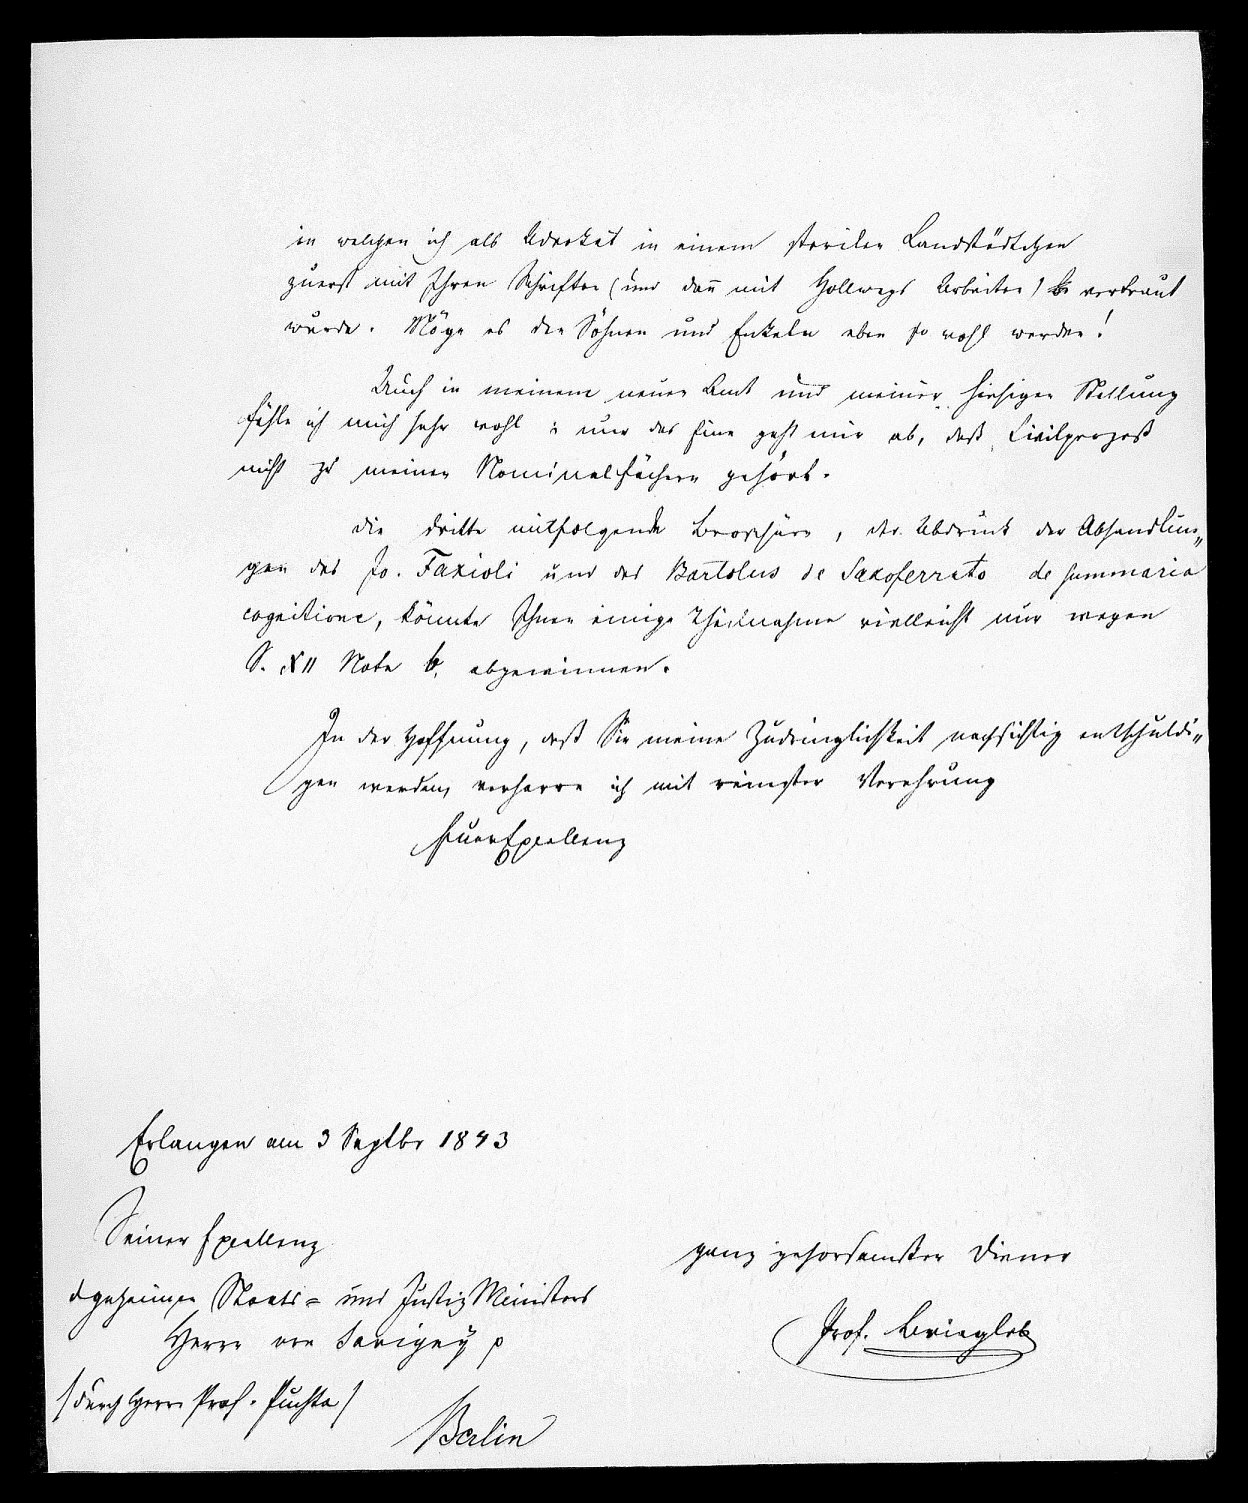 in welchen ich als Advokat in einem sterilen Landstädtchen
zuerst mit Ihren Schriften (und dañ mit Hollwegs Arbeiten) vertraut
wurde. Möge es den Söhnen und Enkeln eben so wohl werden!
Auch in meinem neuen Amt und meiner hiesigen Stellung
fühle ich mich sehr wohl: nur das Eine geht mir ab, daß Civilprozeß
nicht zu meinen Nominalfächern gehört.
Die dritte mitfolgende Broschüre, der Abdruck der Abhandlun„
gen des Jo. Faxioli und des Bartolus de Saxoferrato de summaria
cognitione, könnte Ihnen einige Theilnahme vielleicht nur wegen
S. XII Note b. abgewinnen.
In der Hoffnung, daß Sie meine Zudringlichkeit nachsichtig entschuldi„
gen werden, verharre ich mit reinster Verehrung
Euer Excellenz
Erlangen am 3 Septbr 1843
Seiner Excellenz
d geheimen Staats= und Justiz Ministers
Herrn von Savigny p
/durch Herrn Prof. Puchta/
Berlin
ganz gehorsamster Diener
Prof. Briegleb